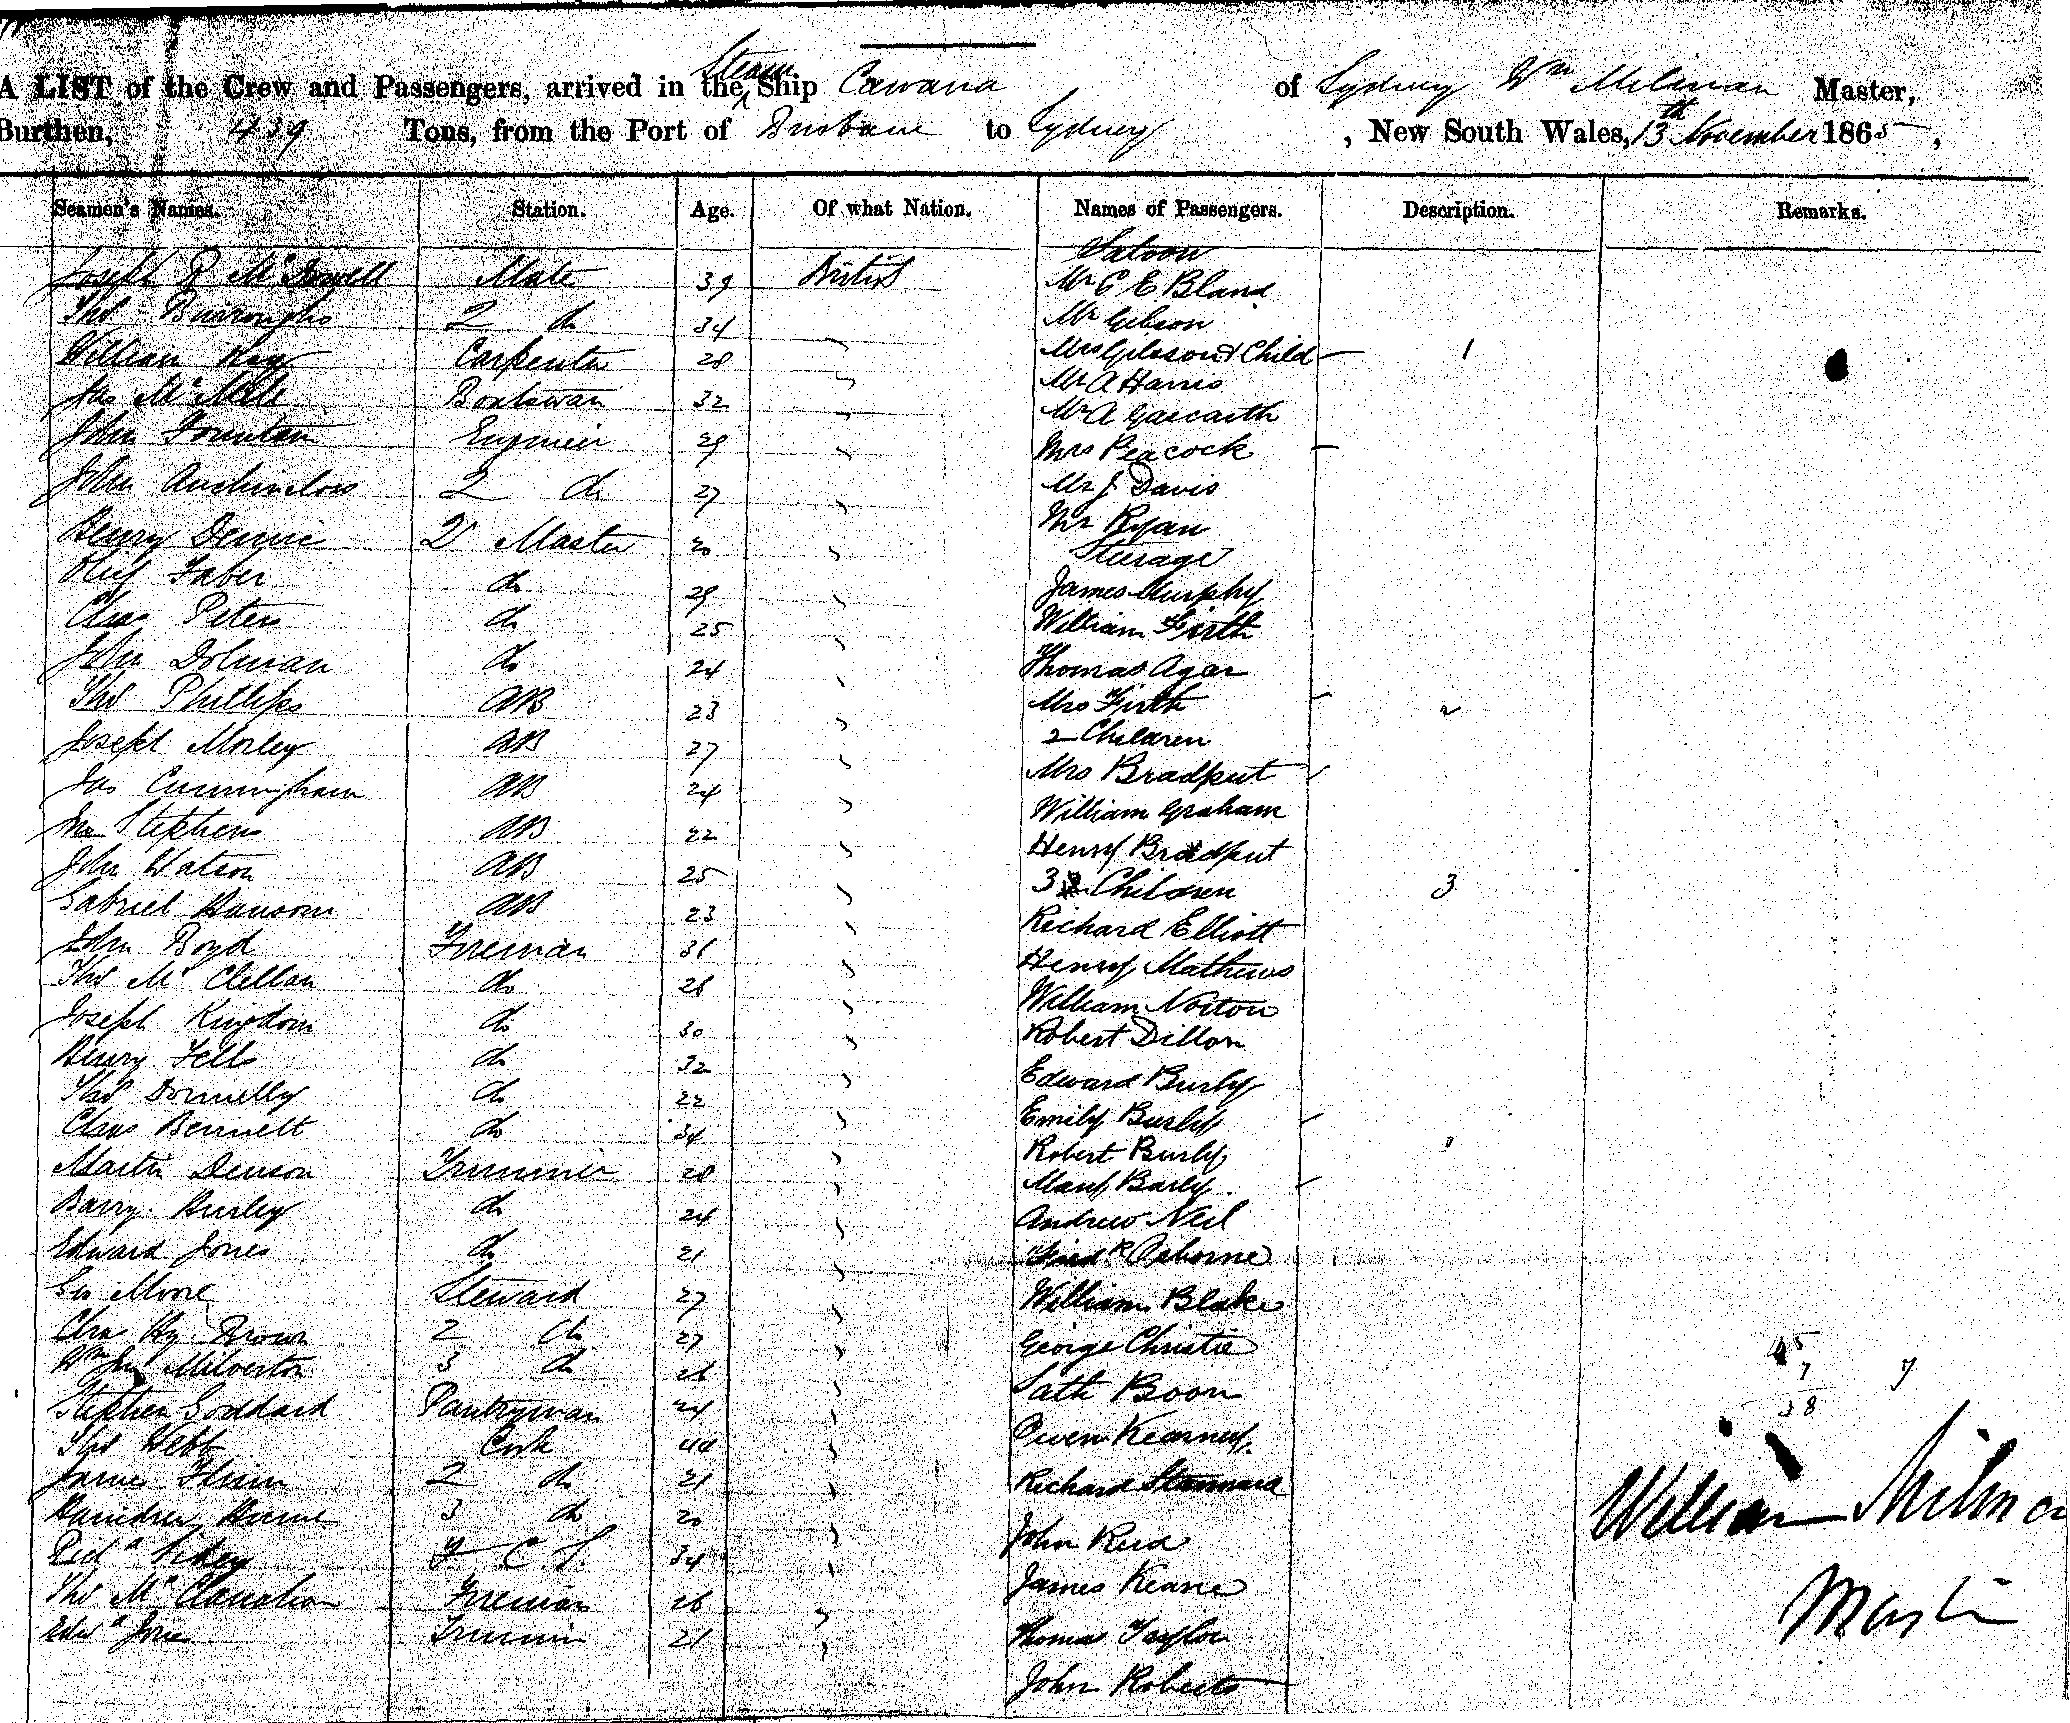 A LIST of the Crew and Passengers, arrived in the Steam Ship Cawana of Sydney Wm Milman Master,
Burthen, 439 Tons, from the Port of Brisbane to Sydney, New South Wales, 13th November 1865,
Seamen's Names. Station. Age. Of what Nation. Names of Passengers. Description. Remarks.
Saloon
Joseph McDowell Mate 39 British Mr C E Bland
Thos Burroughs 2 do 34 Mr Gibson
William Carpenter 28 Mrs Gibson & Child 1
Jas Boatswain 32 Mr A Harris
John Fountain Engineer 29 Mr A Gascarth
Mrs Peacock
John 2 do 27 Mr J. Davis
Mr Ryan
Henry 2r Master 20 Steerage
Oluf Faber do 29 James Murphy
Claas Peters do 25 William Firth
John Dolman do 24 Thomas Agar
Thos Phillips AB 23 Mrs Firth 2
Joseph Morley AB 27 2 Children
Jas Cunningham AB 24 Mrs Bradput
Jno Stephens AB 22 William Graham
John Watson AB 25 Henry Bradput
Gabriel AB 23 3 Children 3
John Boyd Fireman 31 Richard Elliott
Thos McClellan do 26 Henry Mathews
Joseph Kingdom do 30 William Norton
Henry Fells do 32 Robert Dillon
Thos Donnelly do 22 Edward Burly
Chas Bennett do 34 Emily Burly
Martin Denson Trimmer 28 Robert Burly
Barry Burley do 24 Mary Burly
Edward Jones do 21 Andrew Neil
Geo Moore Steward 27 Fredk Osborne
Chas Hy Brown 2 do 27 William Blake
Wm Milverton 3 do 26 George Christie
Stephen Goddard Pantryman 24 Boon
Thos Webb Cook 44 Owen Kearney.
James Flinn 2 do 21 Richard Stannard
3 do 20 John Reid
Richd 34 James Keane
Thos Fireman 26 Thomas Taylor
Edwd Jones Trimmer 21 John Roberts
45
7
38
7
William Milman
Master